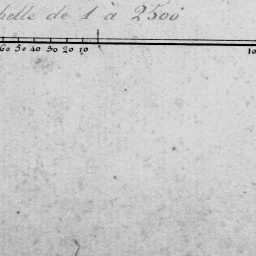 helle de 1 à 2500
60 50 40 30 20 10